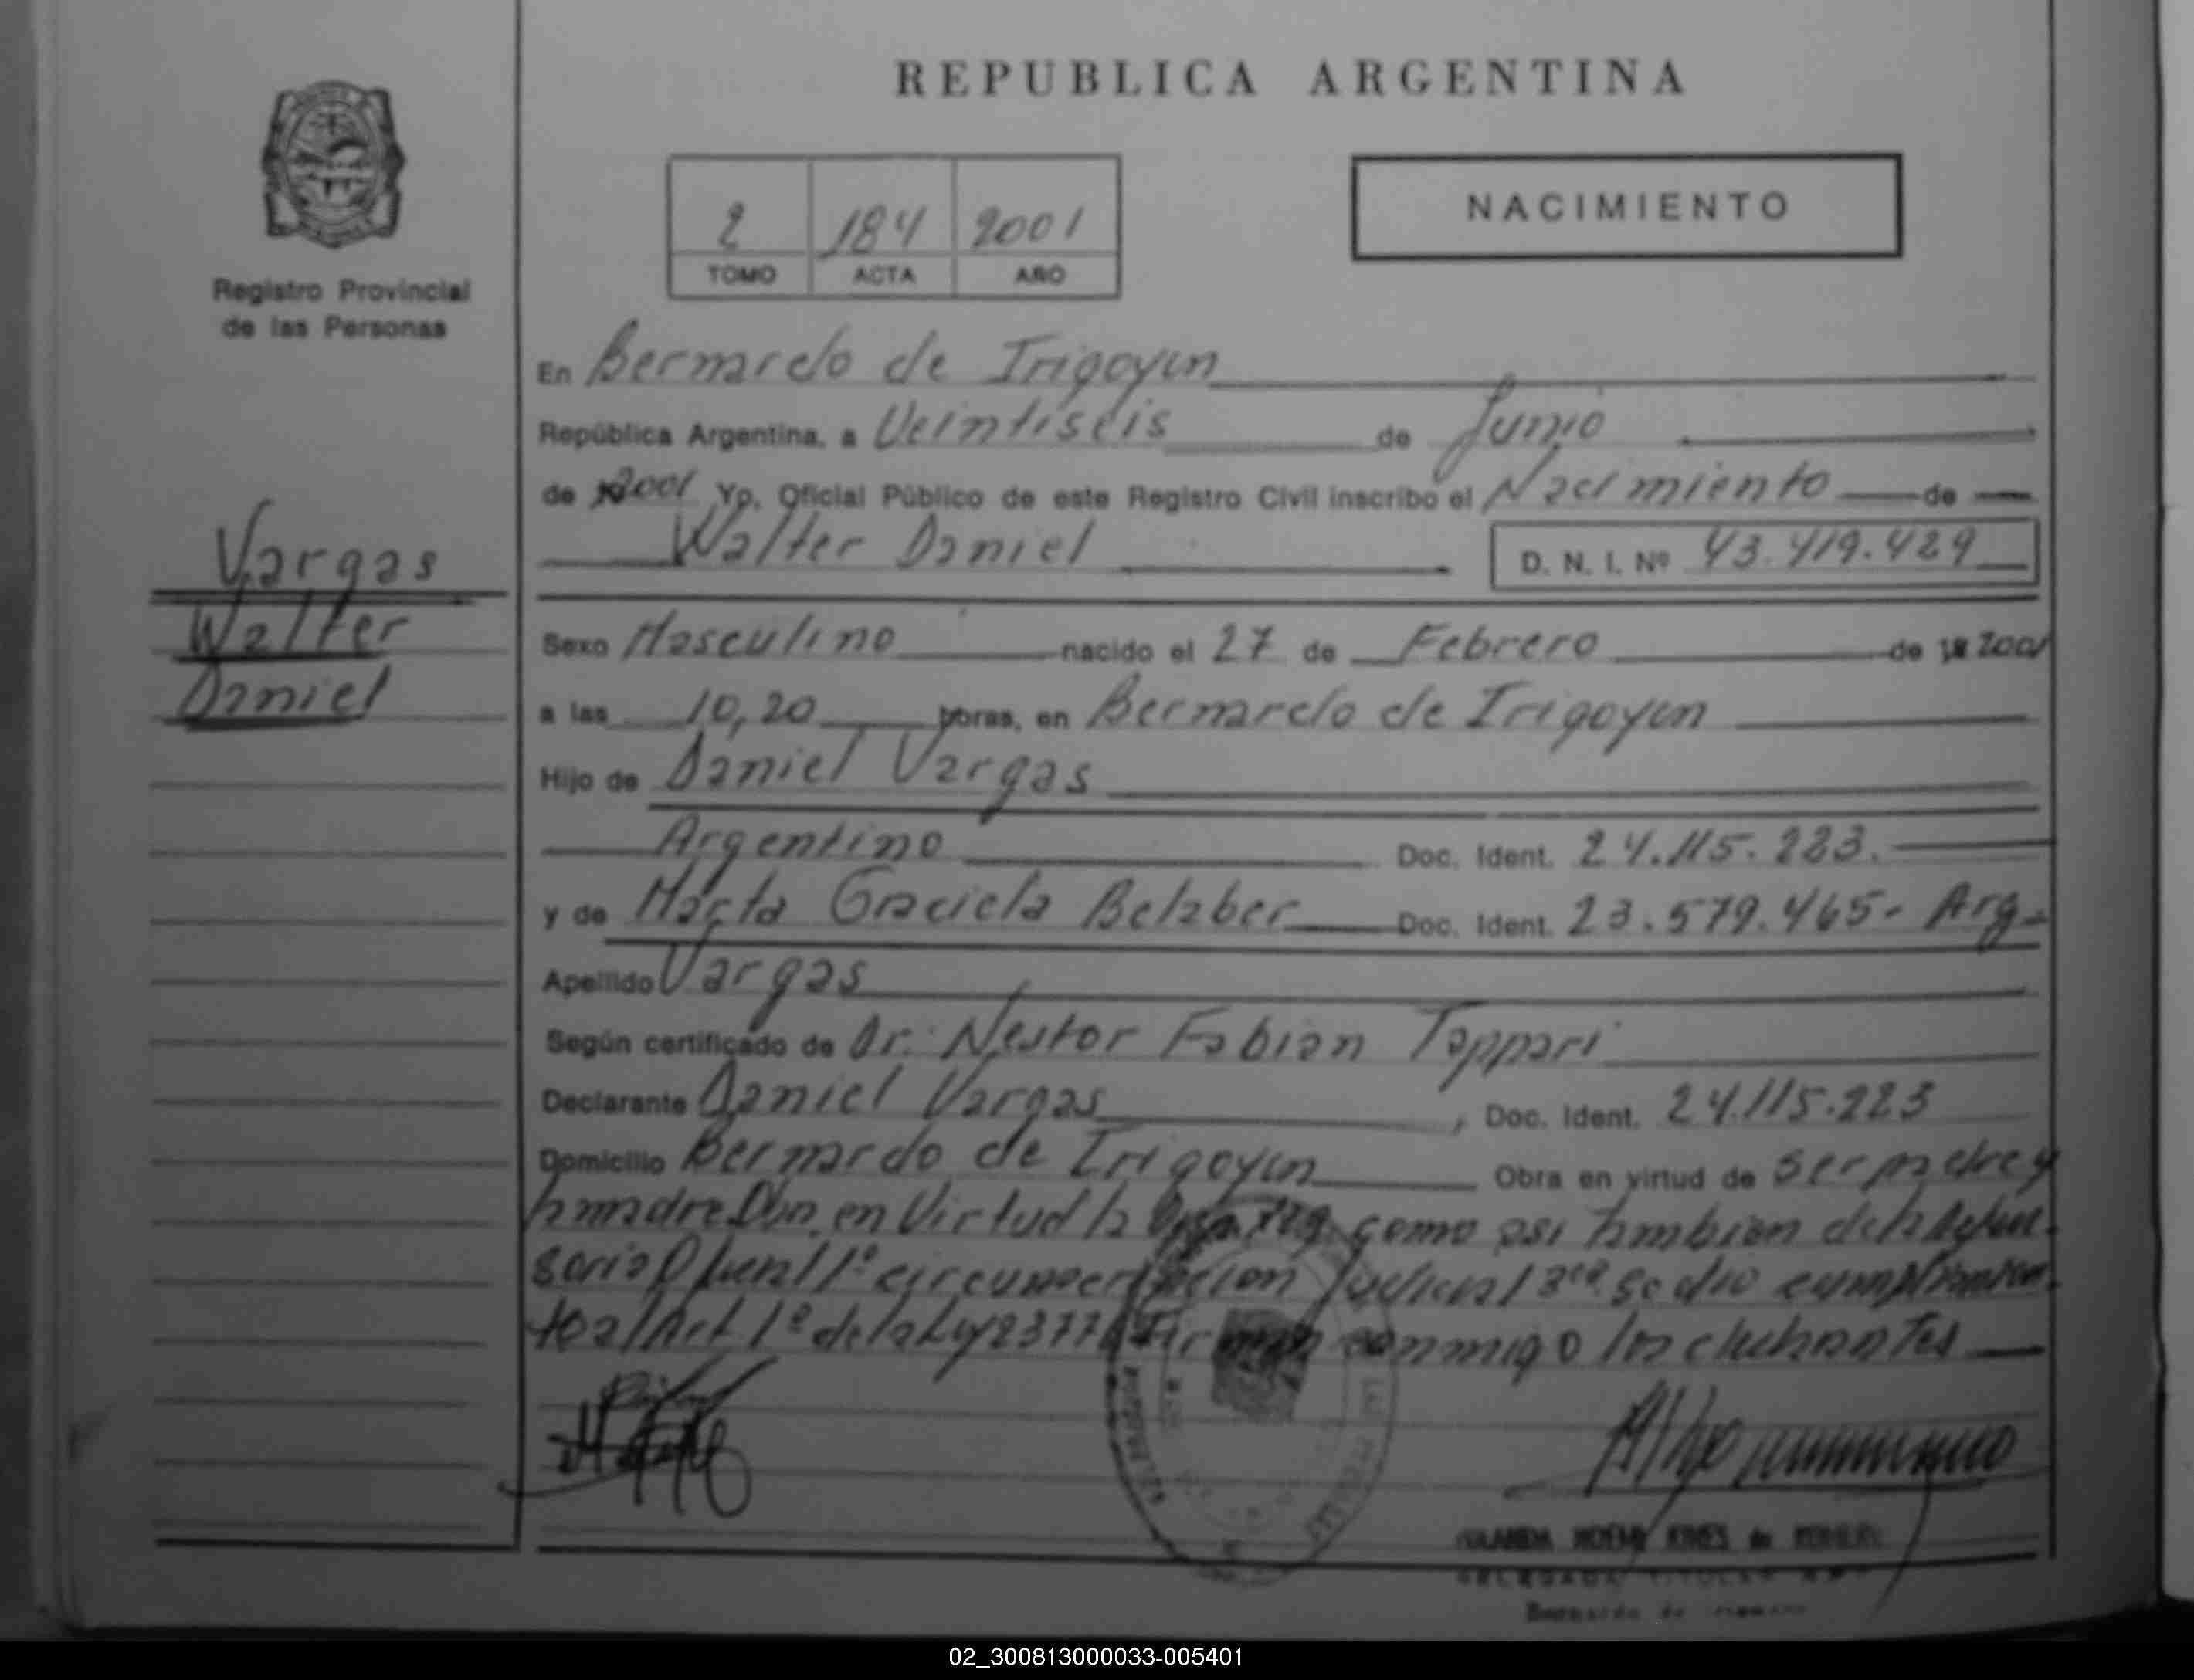 REPUBLICA ARGENTINA
NACIMIENTO
2 184 2001
TOMO ACTA AÑO
Registro Provincial
de las Personas
Vargas
Walter
Daniel
En Bernardo de Irigoyen
República Argentina, a Veintiseis de Junio
de 2001 Yo, Oficial Público de este Registro Civil inscribo el Nacimiento de
Walter Daniel D. N. I. Nº 43.419.429
Sexo Masculino nacido el 27 de Febrero de 2001
a las 10,20 horas, en Bernardo de Irigoyen
Hijo de Daniel Vargas
Argentino Doc. Ident. 24.115.223.
y de Marta Graciela Belzber Doc. Ident. 23.579.465- Arg-
Apellido Vargas
Según certificado de Dr. Nestor Fabian Tappari
Declarante Daniel Vargas, Doc. Ident. 24.115.223
Domicilio Bernardo de Irigoyen Obra en virtud de ser padre y
la madre en Virtud la como asi tambien de la
1º Judicial 3ra. se dio cumplimien-
to al Art 1º de la Ley 23776 Firman conmigo los
NOEMI de
DELEGADA TITULAR
Bernardo de Irigoyen
02_300813000033-005401